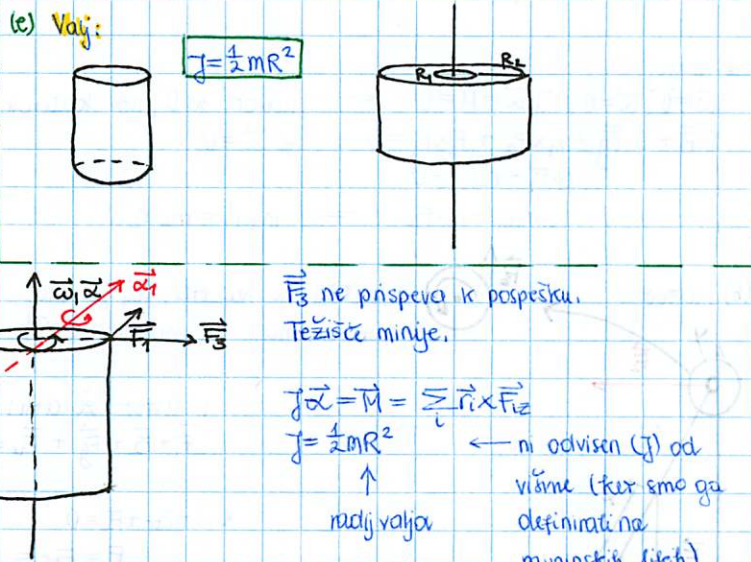 (e) Valj:
J = ½mR²
R₁ R₂
ω⃗, α⃗ α⃗₁
F⃗₁ F⃗₃
F⃗₃ ne prispeva k pospešku.
Težišče miruje.
Jα⃗ = M⃗ = Σᵢ r⃗ᵢ × F⃗ᵢz
J = ½mR² ← ni odvisen (J) od
↑ višine (ker smo ga
radij valja definirali na